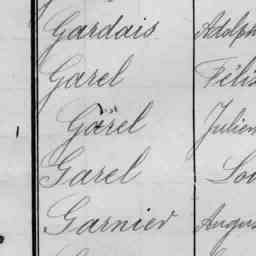 Gardais Adolph
Garel Félix
Garel Julien
Garel Lou
Garnier Augus